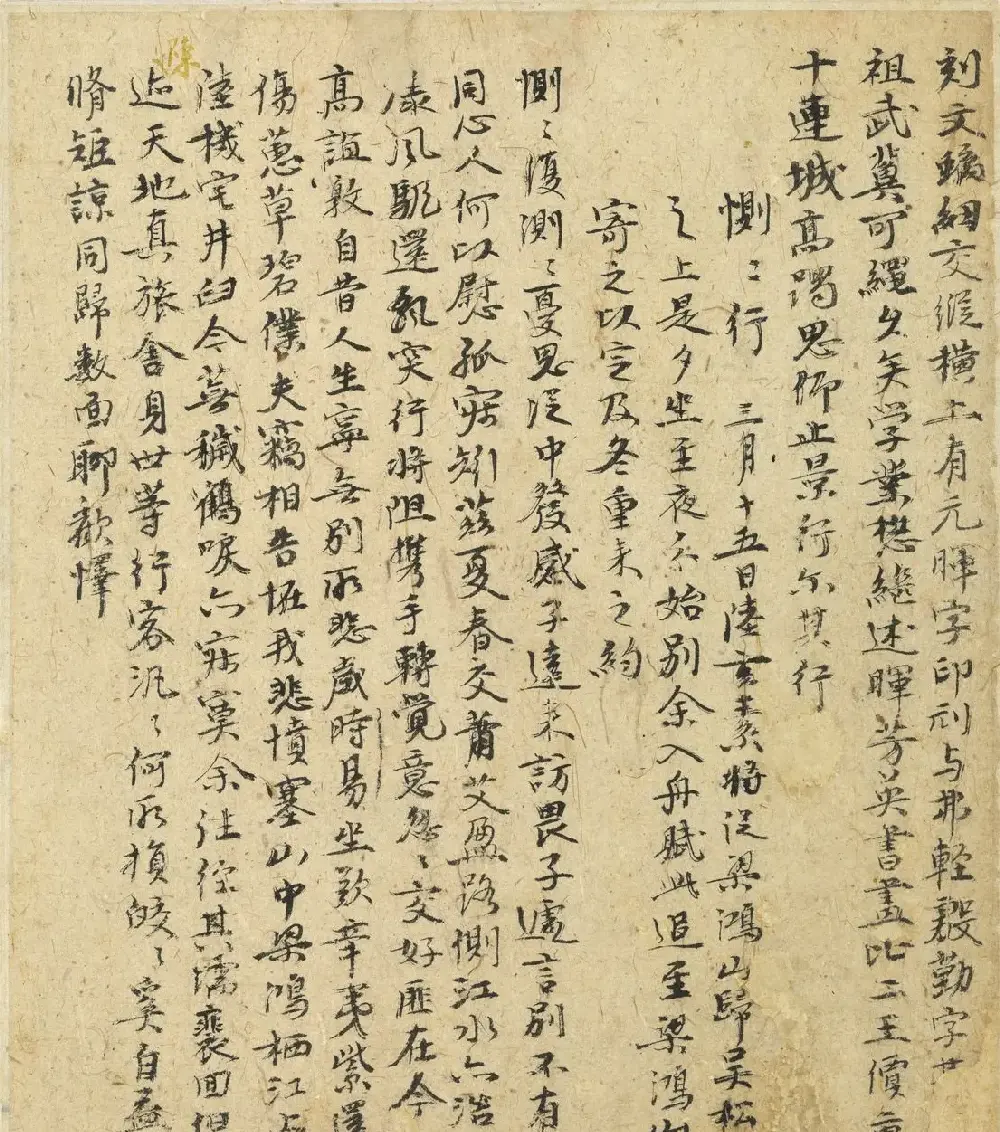 刻文蟠紐交縱横上有元暉字印刓与弗輕毅勤字廿
祖武冀可繩久矣学業懋繼述暉芳英書畫比二王價
十連城高躅思仰止景行尓其行
惻〻行 三月十五日陸玄素將從梁鴻山歸吴松
之上是夕坐至夜分始別余入舟賦此追至梁鴻
寄之以定及冬重来之約
惻〻復測〻憂思從中發感子遠来訪畏子遽言別不有
同心人何以慰孤寂矧兹夏春交蕭艾盈路側江水亦浩
風颿還飄突行將阻携手轉覺意忽〻交好匪在今
高誼敦自昔人生寧無別所悲歲時易坐歎辛夷紫還
傷蕙草碧僕夫竊相告我悲憤塞山中梁鴻栖江上
陸機宅井臼今蕪穢鶴唳亦寂寞余往其濡回
迹天地真旅舍身世等行客汎〻何所損皎〻奚自益
脩短諒同歸数面聊歡懌